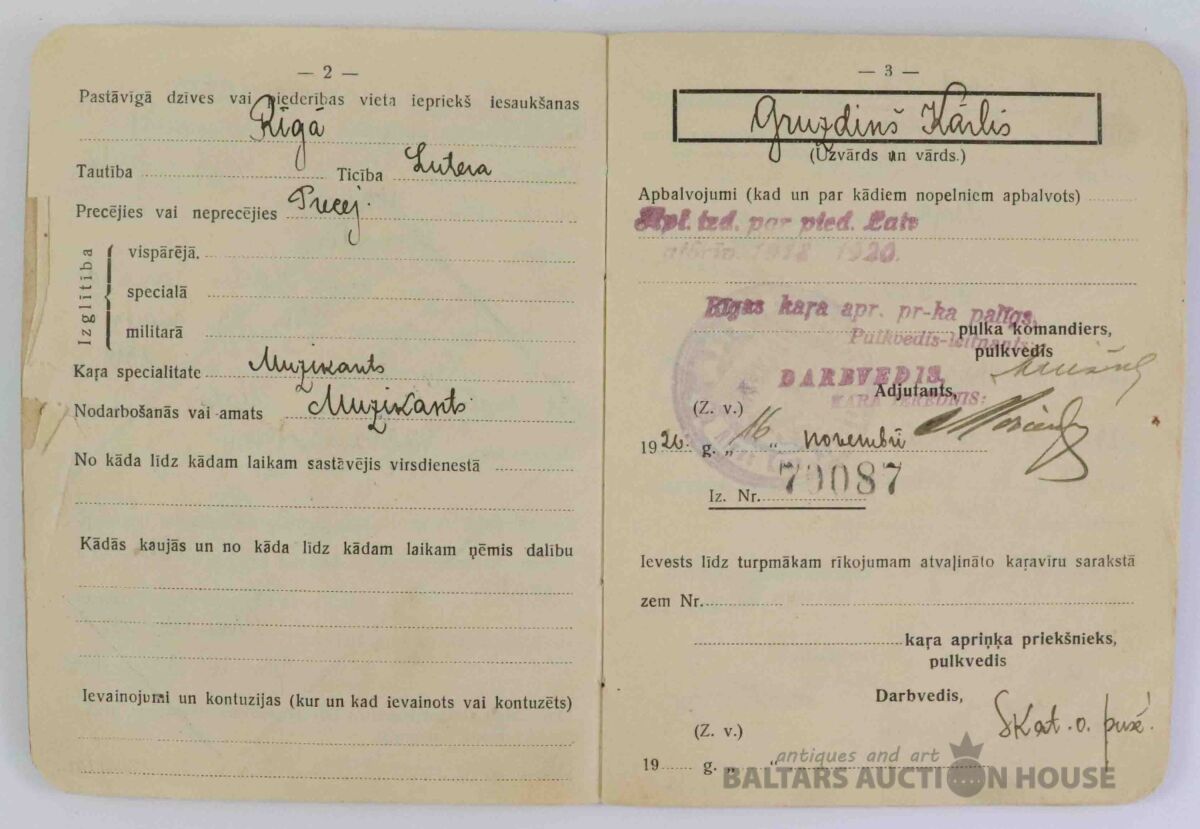 — 2 —
Pastāvīgā dzīves vai piederības vieta iepriekš iesaukšanas
Rīgā
Tautība Ticība Lutera
Precējies vai neprecējies Precej.
Izglītība
vispārējā.
specialā
militarā
Kaŗa specialitate Muzikants
Nodarbošanās vai amats Muzikants
No kāda līdz kādam laikam sastāvējis virsdienestā
Kādās kaujās un no kāda līdz kādam laikam ņēmis dalību
Ievainojumi un kontuzijas (kur un kad ievainots vai kontuzēts)
— 3 —
Gruzdiņš Kārlis
(Uzvārds un vārds.)
Apbalvojumi (kad un par kādiem nopelniem apbalvots)
Apl. izd. par pied. Latv
1918 1920.
Rīgas kaŗa apr. pr-ka palīgs,
pulka komandiers,
Pulkvedis-leitnants
pulkvedis
DARBVEDIS,
Adjutants,
KARA IERĒDNIS:
(Z. v.)
1926. g. „16„ novembŗī
Iz. Nr. 79087
Ievests līdz turpmākam rīkojumam atvaļināto kaŗavīru sarakstā
zem Nr.
kaŗa apriņķa priekšnieks,
pulkvedis
Darbvedis,
Skat. o. pusē!
(Z. v.)
19 g. „ „
antiques and art
BALTARS AUCTION HOUSE